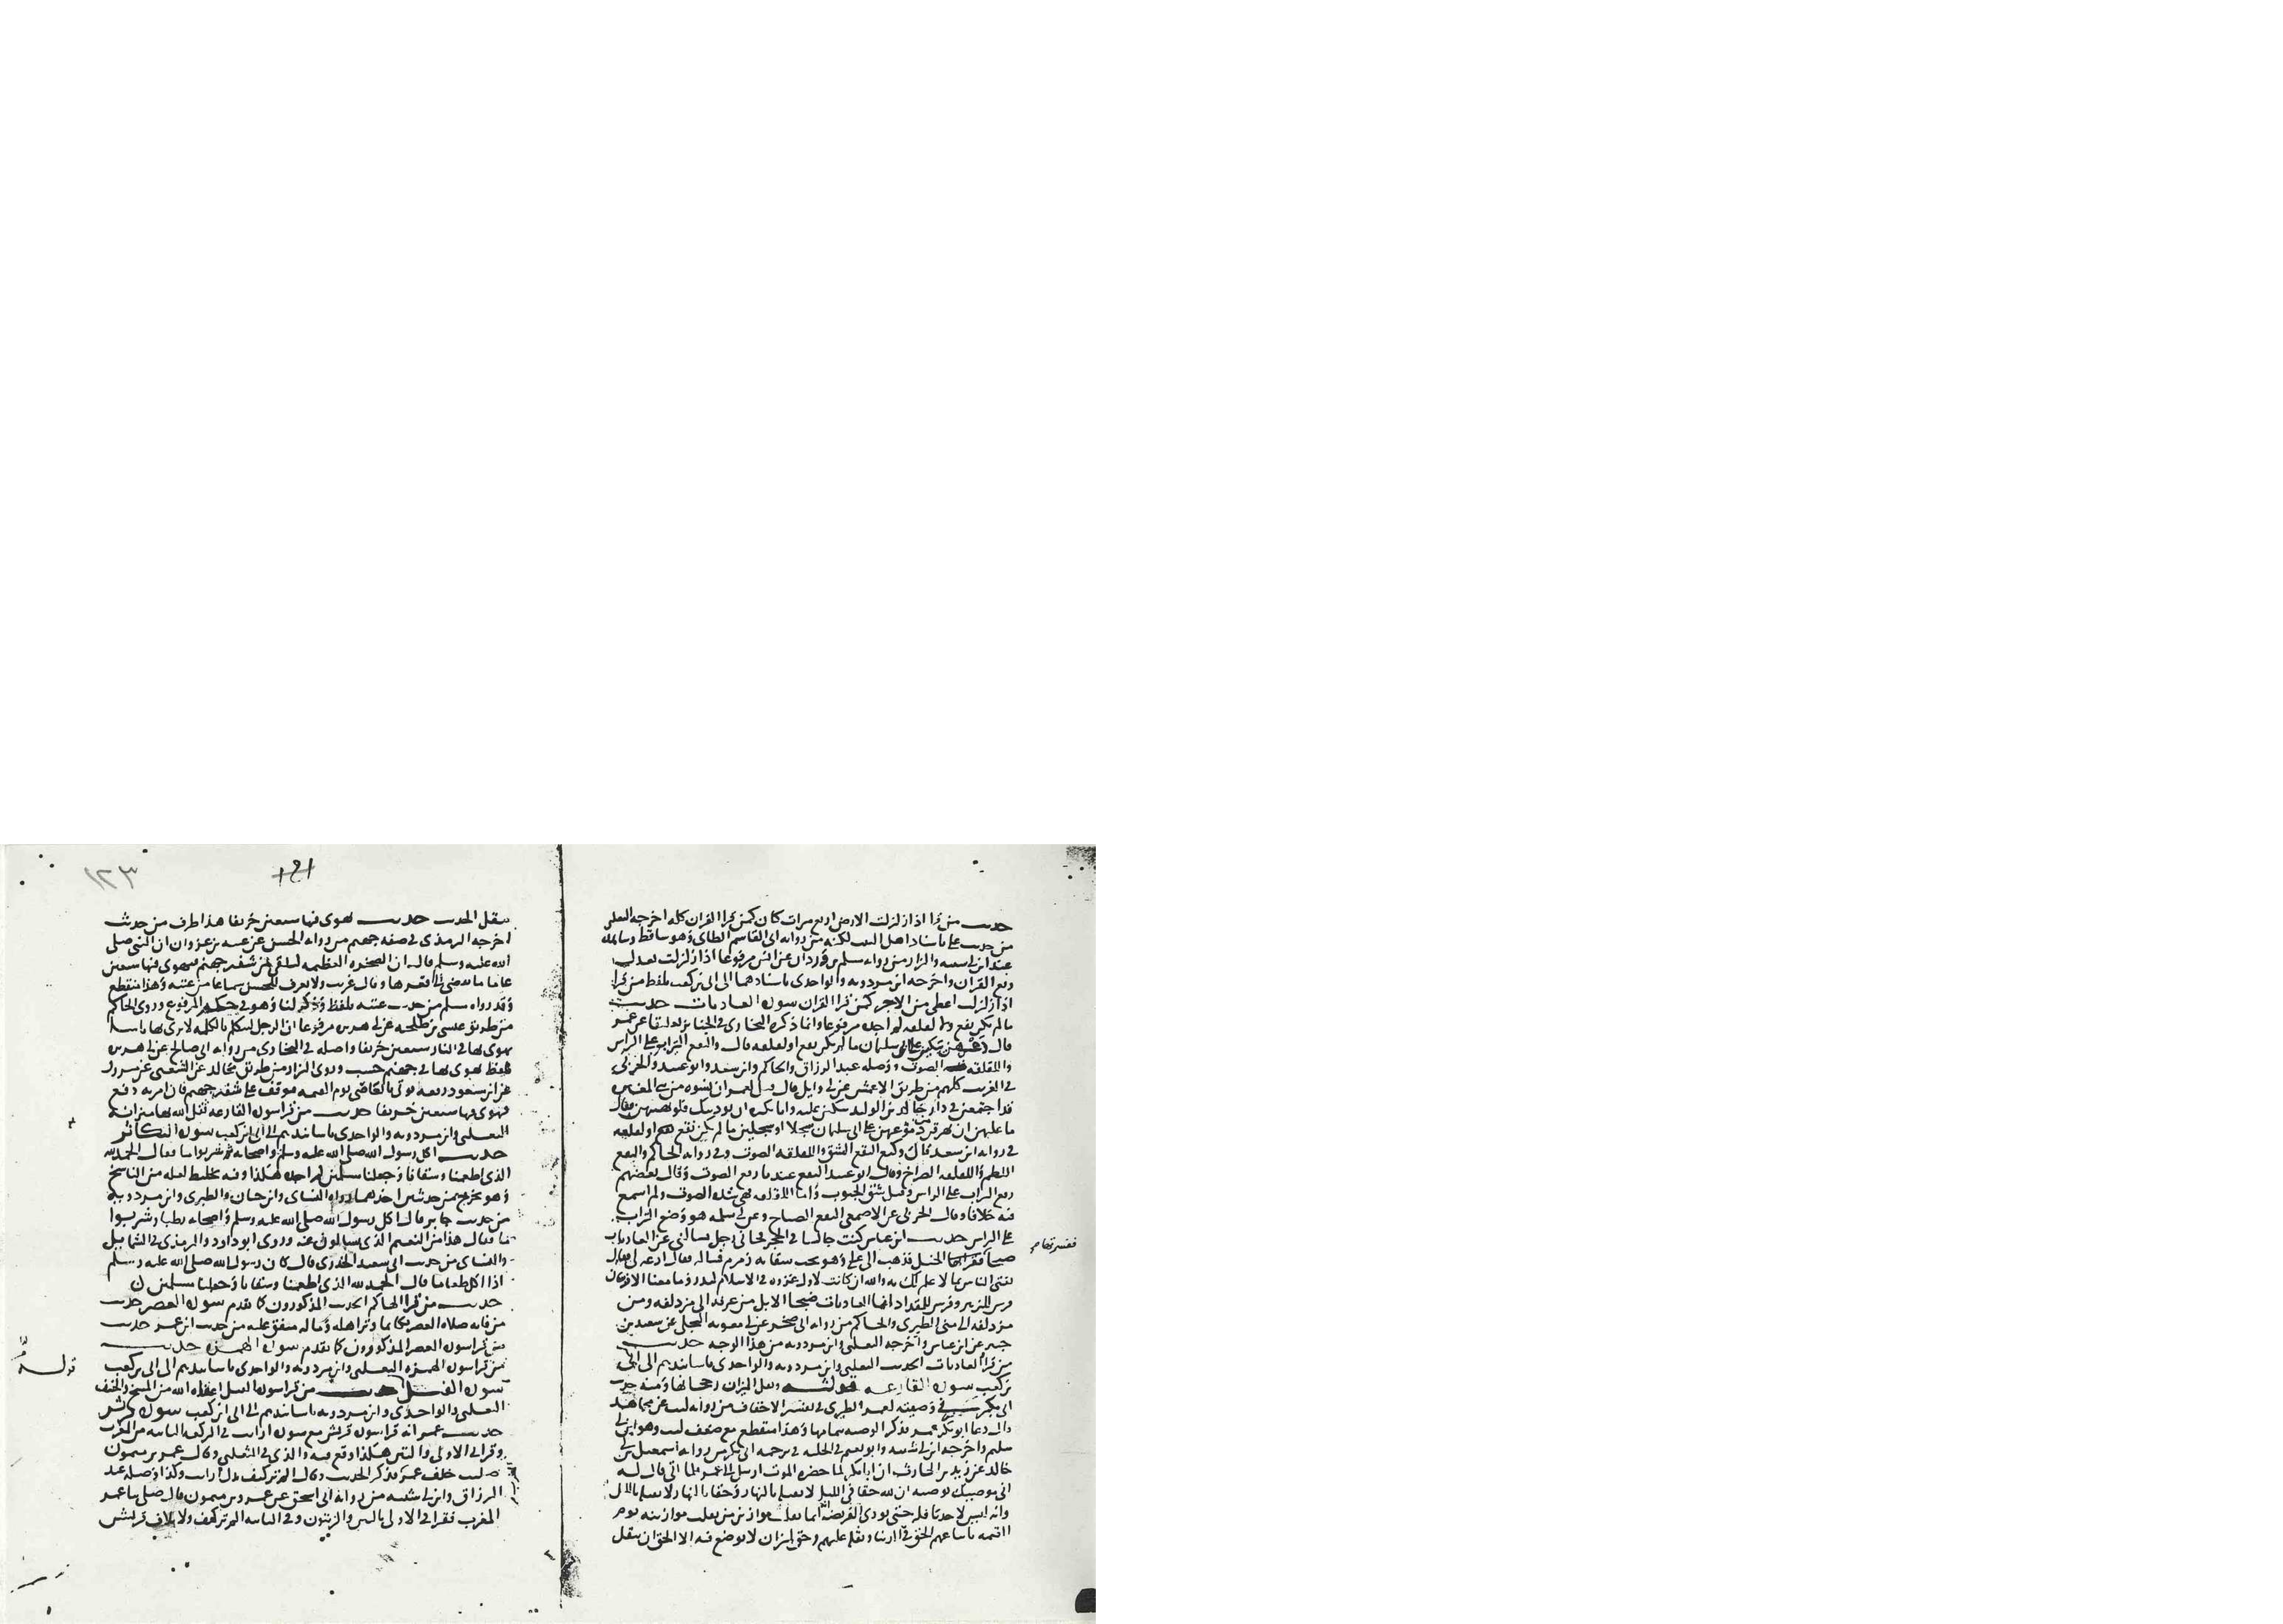 حديث من قرا اذا زلزلت الارض اربع مرات كان كمن قرا القران كله اخرجه الثعلبي
من حديث علي باسناد اهل البيت لكنه من رواية ابي القاسم الطاي وهو ساقط وشاهده
عند ابن ابي شيبه والبزار من رواية سلمه بن وردان عن انس مرفوعا اذا زلزلت تعدل
ربع القران واخرجه ابن مردويه والواحدي باسنادهما الى ابي بن كعب بلفظ من قرا
اذا زلزلت اعطي من الاجر كمن قرا القران سورة العاديات حديث
ما لم يكن نقع ولا لقلقه لم اجده مرفوعا وانما ذكره البخاري في الجنايز تعليقا عن عمر
قال دعهن يبكين على ابي سليمان ما لم يكن نقع او لقلقه قال والنقع التراب على الراس
واللقلقه الصوت ووصله عبد الرزاق والحاكم وابن سعد وابو عبيد والحربي
في الغريب كلهم من طريق الاعمش عن ابي وايل قال قيل لعمر ان نسوه من بني المغيره
قد اجتمعن في دار خالد بن الوليد يبكين عليه وانا نكره ان يوذينك فلو نهيتهن فقال
ما عليهن ان يهرقن دموعهن على ابي سليمان سجلا او سجلين ما لم يكن نقع او لقلقه
في رواية ابن سعد قال وكيع النقع الشق واللقلقه الصوت وفي رواية الحاكم والنقع
اللطم واللقلقه الصراخ وقال ابو عبيد النقع عندنا رفع الصوت وقال بعضهم
رفع التراب على الراس وقيل شق الجيوب واما اللقلقه فهي شدة الصوت ولم اسمع
فيه خلافا وقال الحربي عن الاصمعي النقع الصياح وعن ابي سلمه هو وضع التراب
على الراس حديث ابن عباس كنت جالسا في الحجر فجاني رجل يسالني عن العاديات
ضبحا ففسرتها بالخيل فذهب الى علي وهو تحت سقاية زمزم فساله فقال ادعه لي فقال
تفتي الناس بما لا علم لك به والله ان كانت لاول غزوه في الاسلام لبدر وما معنا الا فرسان
فرس للزبير وفرس للمقداد انما العاديات ضبحا الابل من عرفه الى مزدلفه ومن
مزدلفه الى منى الطبري والحاكم من رواية ابي صخر عن ابي معويه البجلي عن سعيد بن
جبير عن ابن عباس واخرجه الثعلبي وابن مردويه من هذا الوجه حديث
من قرا العاديات الحديث الثعلبي وابن مردويه والواحدي باسانيدهم الى ابي
بن كعب سورة القارعه قوله وثقل الميزان رجحانها ومنه حديث
ابي بكر في وصيته لعمر الطبري في تفسير الاحقاف من رواية ليث عن مجاهد
قال دعا ابو بكر عمر فذكر الوصيه بتمامها وهذا منقطع مع ضعف ليث وهو ابن ابي
سليم واخرجه ابن ابي شيبه وابو نعيم في الحليه في ترجمه ابي بكر من رواية اسمعيل بن ابي
خالد عن زبيد بن الحارث ان ابا بكر لما حضره الموت ارسل الى عمر فلما اتى قال له
اني موصيك بوصيه ان لله حقا في الليل لا يقبله بالنهار وحقا بالنهار لا يقبله بالليل
وانه ليس لاحد نافله حتى يودي الفريضه انما ثقلت موازين من ثقلت موازينه يوم
القيمه باتباعهم الحق في الدنيا وثقله عليهم وحق لميزان لا يوضع فيه الا الحق ان يثقل
ففسرتها صح
١٢٣
يثقل الحديث حديث يهوي فيها سبعين خريفا هذا طرف من حديث
اخرجه الترمذي في صفه جهنم من رواية الحسن عن عتبه بن غزوان ان النبي صلى
الله عليه وسلم قال ان الصخره العظيمه لتلقى من شفير جهنم فتهوي فيها سبعين
عاما ما تفضي الى قعرها وقال غريب ولا يعرف للحسن سماعا من عتبه وهذا منقطع
وقد رواه مسلم من حديث عتبه بلفظ وذكر لنا وهو في حكم المرفوع وروى الحاكم
من طريق عيسى بن طلحه عن ابي هريره مرفوعا ان الرجل ليتكلم بالكلمه لا يرى بها باسا
يهوي بها في النار سبعين خريفا واصله في البخاري من رواية ابي صالح عن ابي هريره
بلفظ يهوي بها في جهنم حسب وروى البزار من طريق مجالد عن الشعبي عن مسروق
عن ابن مسعود رفعه يوتى بالقاضي يوم القيمه فيوقف على شفير جهنم فان امر به دفع
فهوى فيها سبعين خريفا حديث من قرا سورة القارعه ثقل الله بها ميزانه
الثعلبي وابن مردويه والواحدي باسانيدهم الى ابي بن كعب سورة التكاثر
حديث اكل رسول الله صلى الله عليه وسلم واصحابه تمرا وشربوا ما فقال الحمد لله
الذي اطعمنا وسقانا وجعلنا مسلمين لم اجده هكذا وفيه تخليط لعله من الناسخ
وهو مخرج من حديثين احدهما رواه النساي وابن حبان والطبري وابن مردويه
من حديث جابر قال اكل رسول الله صلى الله عليه وسلم واصحابه رطبا وشربوا
ما فقال هذا من النعيم الذي تسالون عنه وروى ابو داود والترمذي في الشمايل
والنساي من حديث ابي سعيد الخدري قال كان رسول الله صلى الله عليه وسلم
اذا اكل طعاما قال الحمد لله الذي اطعمنا وسقانا وجعلنا مسلمين
حديث من قرا الهاكم الحديث المذكورون كما تقدم سورة العصر حديث
من فاته صلاه العصر فكانما وتر اهله وماله متفق عليه من حديث ابن عمر حديث
من قرا سورة العصر المذكورون كما تقدم سورة الهمزه حديث
من قرا سورة الهمزه الثعلبي وابن مردويه والواحدي باسانيدهم الى ابي بن كعب
سورة الفيل حديث من قرا سورة الفيل اعفاه الله من المسخ والخسف
الثعلبي والواحدي وابن مردويه باسانيدهم الى ابي بن كعب سورة قريش
حديث عمر انه قرا سورة قريش مع سورة ارايت في الركعه الثانيه من المغرب
وقرا في الاولى والتين هكذا وقع فيه والذي في الثعلبي وقال عمرو بن ميمون
صليت خلف عمر فذكر الحديث وقال الم تر كيف بدل ارايت وكذا وصله عبد
الرزاق وابن ابي شيبه من رواية ابي اسحق عن عمرو بن ميمون قال صلى بنا عمر
المغرب فقرا في الاولى بالتين والزيتون وفي الثانيه الم تر كيف ولايلاف قريش
قوله